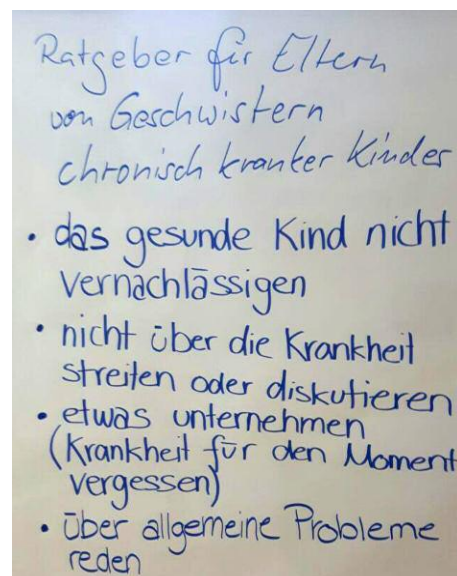 Ratgeber für Eltern
von Geschwistern
chronisch kranker Kinder
• das gesunde Kind nicht
vernachlässigen
• nicht über die Krankheit
streiten oder diskutieren
• etwas unternehmen
(Krankheit für den Moment
vergessen)
• über allgemeine Probleme
reden